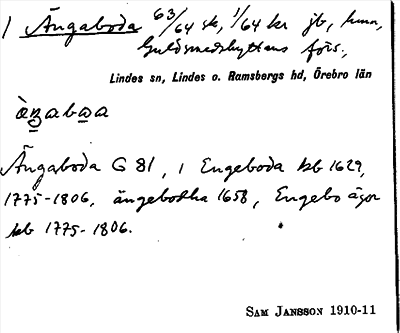 1 Ängaboda 63/64 sk, 1/64 kr jb, hmn,
Guldsmedshyttans förs.,
Lindes sn, Lindes o. Ramsbergs hd, Örebro län
Ängaboda G 81, 1 Engeboda kb 1629,
1775-1806, ängebodha 1658, Engebo ägor
kb 1775-1806.
SAM JANSSON 1910-11